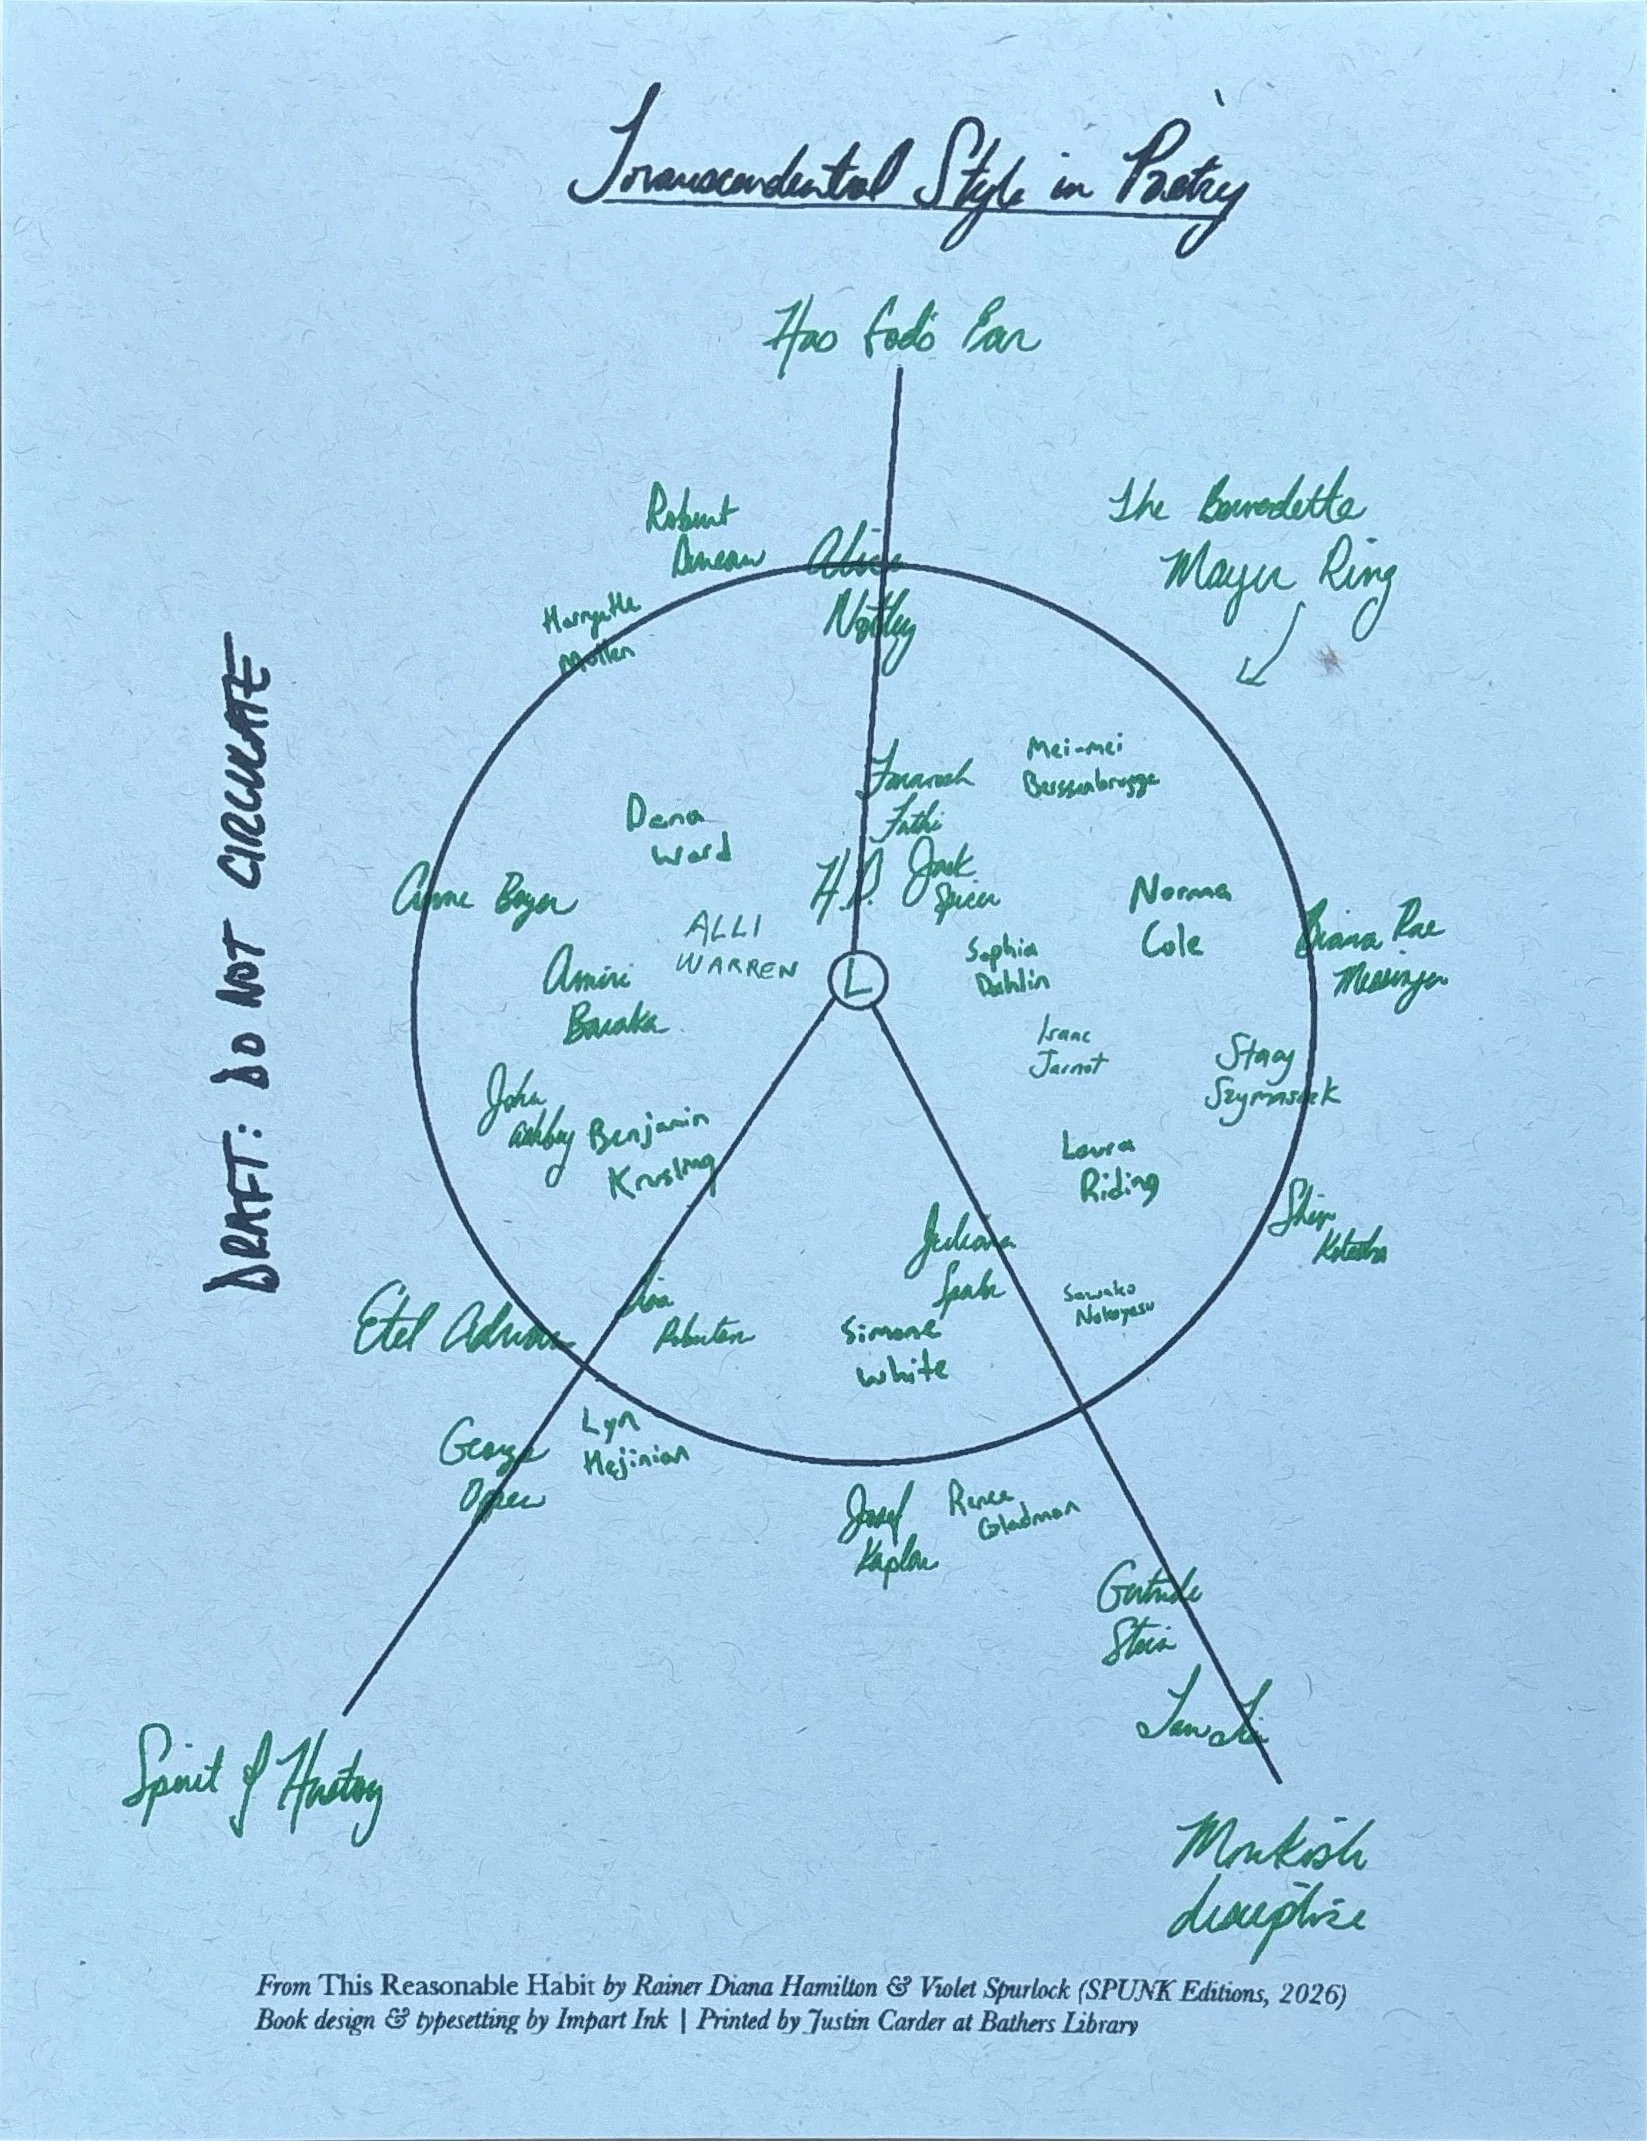 Transcendental Style in Poetry
Has God's Ear
The Bernadette
Mayer Ring
Robert
Duncan
Alice
Notley
Harryette
Mullen
DRAFT: DO NOT CIRCULATE
Mei-mei
Berssenbrugge
Farnoosh
Fathi
Dana
Ward
H.D.
Jack
Spicer
Anne Boyer
Norma
Cole
Diana Rae
Messinger
ALLI
WARREN
Sophia
Dahlin
Amiri
Baraka
L
Isaac
Jarnot
Stacy
Szymaszek
John
Ashbery
Benjamin
Krusling
Laura
Riding
Shiv
Kotecha
Juliana
Spahr
Etel Adnan
Lisa
Robertson
Simone
White
Sawako
Nakayasu
George
Oppen
Lyn
Hejinian
Josef
Kaplan
Renee
Gladman
Gertrude
Stein
Tan Lin
Spirit of History
Monkish
discipline
From This Reasonable Habit by Rainer Diana Hamilton & Violet Spurlock (SPUNK Editions, 2026)
Book design & typesetting by Impart Ink | Printed by Justin Carder at Bathers Library